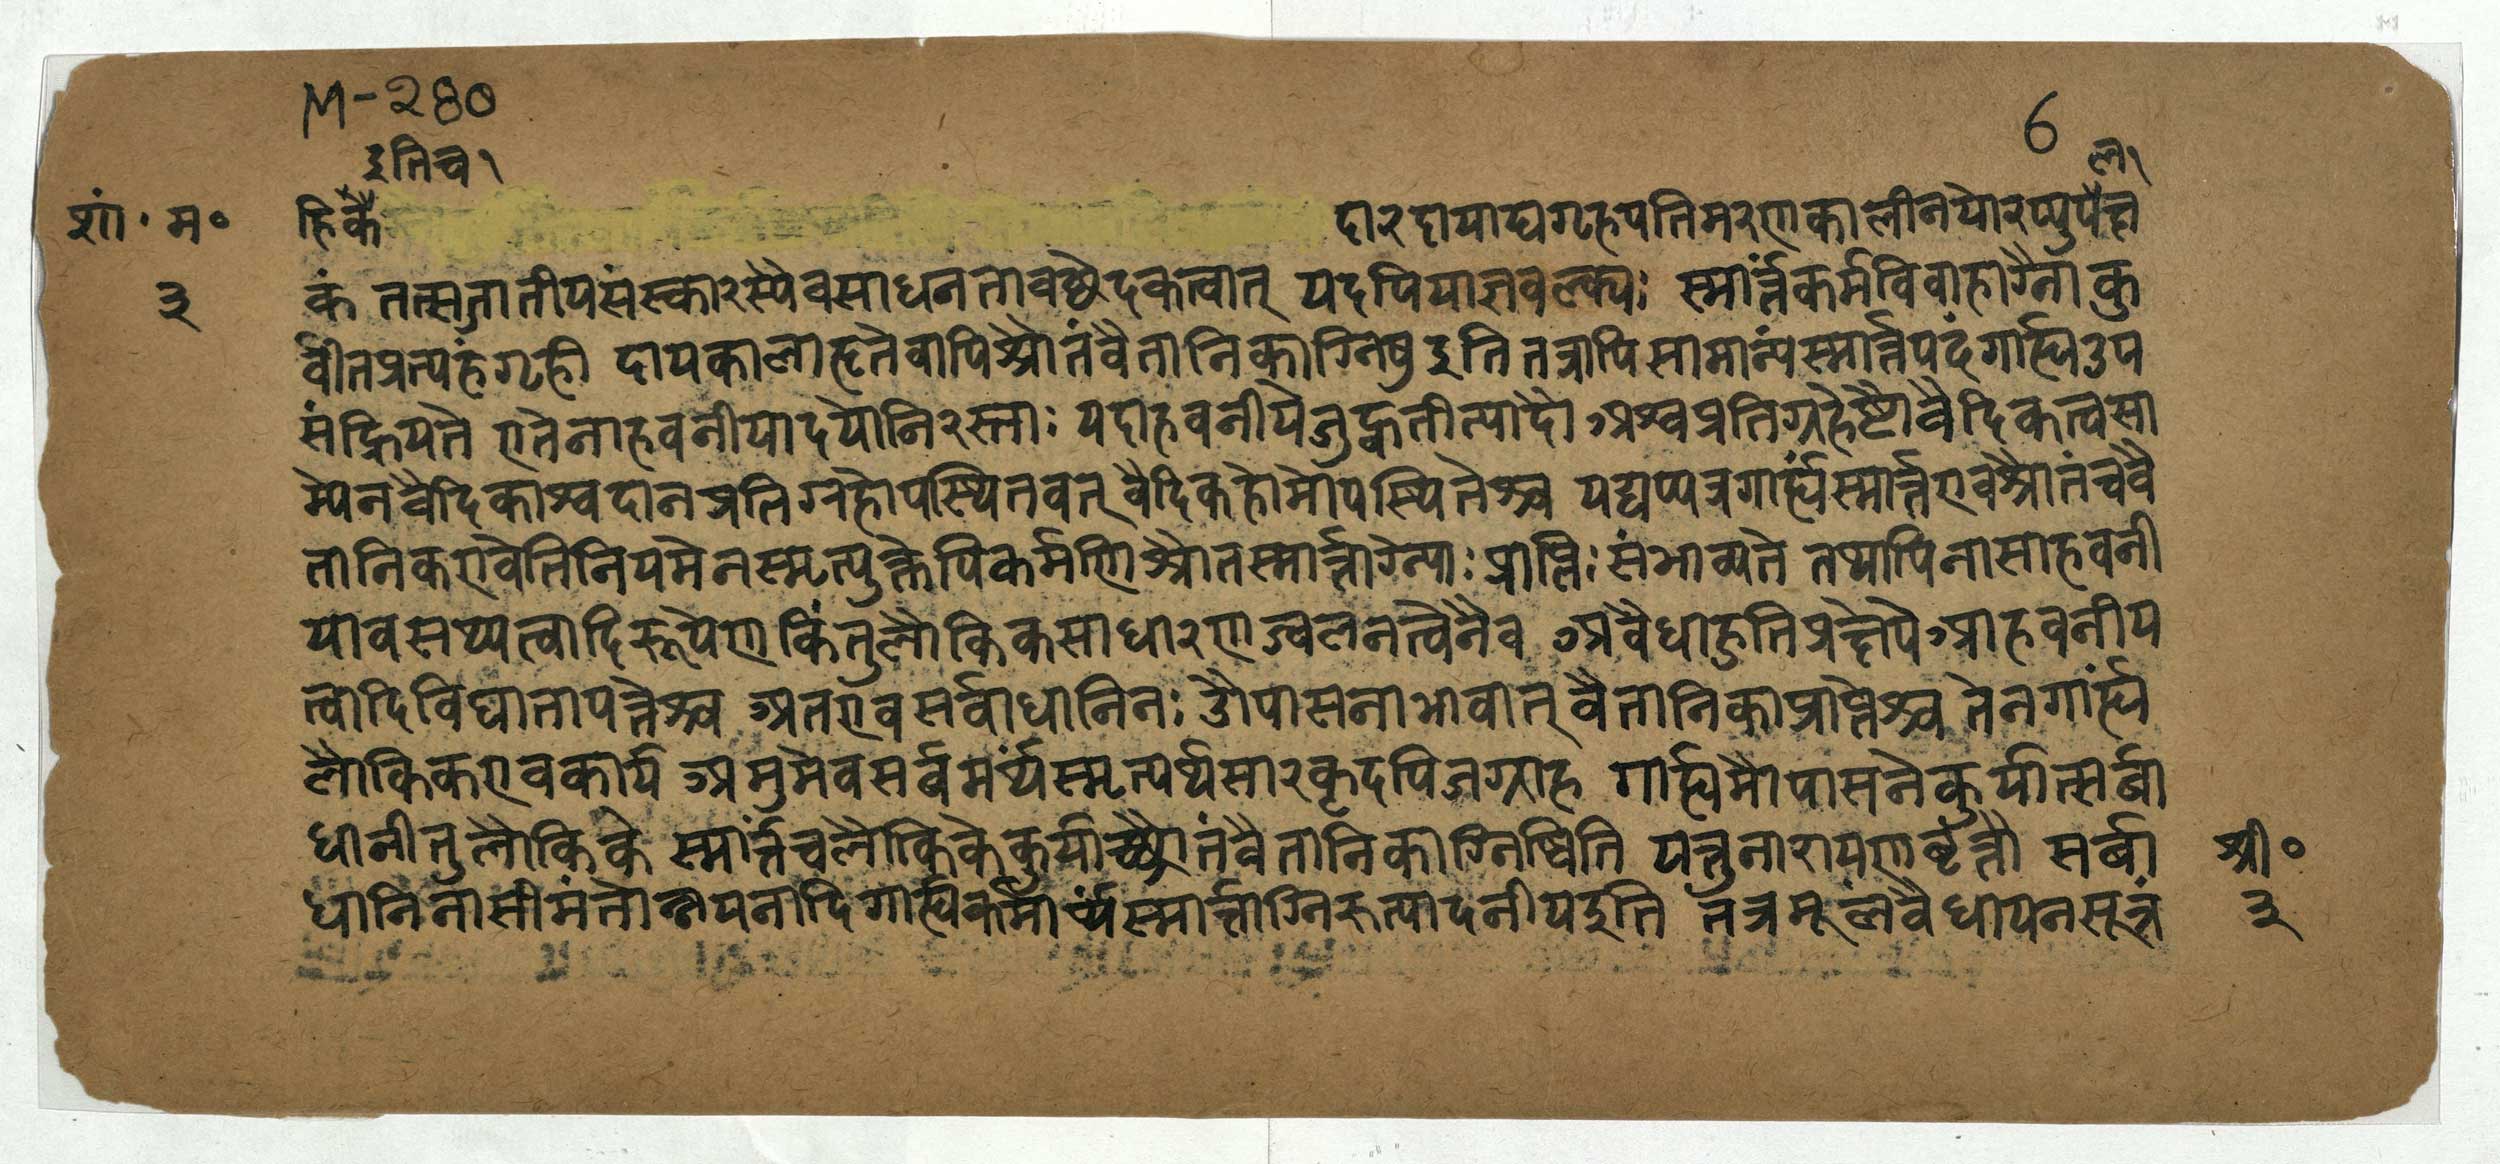 M-280
6
इतिच१
ल१
शां॰म॰ हिकै दारदायाद्यगृहपतिमरणकालीनयोरप्युपे
३ कं तत्सजातीयसंस्कारस्यैवसाधनतावच्छेदकत्वात् यदपियाज्ञवल्क्यः स्मार्त्तंकर्मविवाहाग्नौ कु
र्वीतप्रत्यहंगृही दायकालाहृतेवापिश्रौतंवैतानिकाग्निषु इति तत्रापि सामान्यंस्मार्त्तपदं गार्ह्यउप
संह्रियते एतेनाहवनीयादयोनिरस्ताः यदाहवनीयेजुह्वतीत्यादौ अश्वप्रतिग्रहेष्टौवैदिकत्वसा
म्येनवैदिकाश्वदानप्रतिग्रहोपस्थितवत् वैदिकहोमोपस्थितेश्च यद्यप्यत्रगार्ह्यंस्मार्त्तएवश्रौतंचवै
तानिकएवेतिनियमेनस्मृत्युक्तेपिकर्मणिश्रौतस्मार्त्ताग्न्योः प्राप्तिः संभाव्यते तथापिनासाहवनी
यावसथ्यत्वादिरूपेण किंतुलौकिकसाधारणज्वलनत्वेनैव अवैधाहुतिप्रक्षेपेआहवनीय
त्वादिविघातापत्तेश्च अतएवसर्वाधानिनः औपासनाभावात् वैतानिकाप्राप्तेश्च तेनगार्ह्यं
लौकिकएवकार्यं अमुमेवसर्वमर्थंस्मृत्यर्थसारकृदपिजग्राह गार्ह्यमौपासनेकुर्यात्सर्वा
धानीतुलौकिके स्मार्त्तंचलौकिकेकुर्याच्छ्रौतंवैतानिकाग्निष्विति यत्तुनारायणवृत्तौ सर्वा श्री॰
धानिनासीमंतोन्नयनादिगार्ह्यकर्मार्थंस्मार्त्ताग्निरुत्पादनीयइति तत्रमूलंबैधायनसूत्रं ३